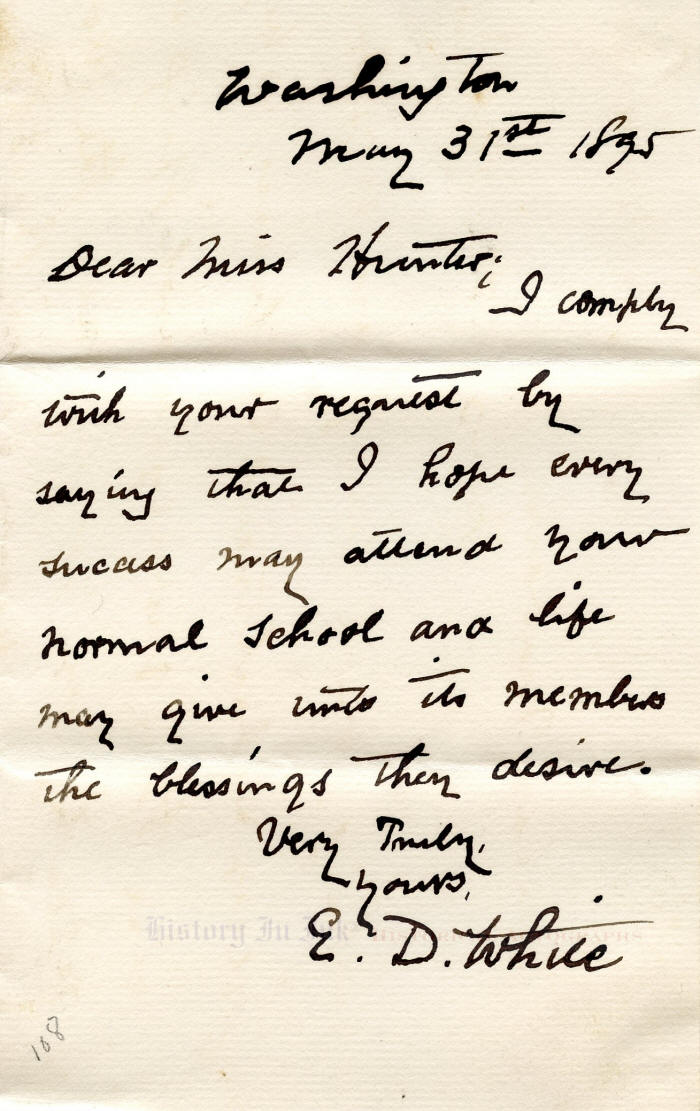 Washington
May 31st 1895
Dear Miss Hunter,
I comply
with your request by
saying that I hope every
success may attend your
normal school and life
may give unto its members
the blessings they desire.
Very Truly,
yours,
History In Ink
E. D. White
108